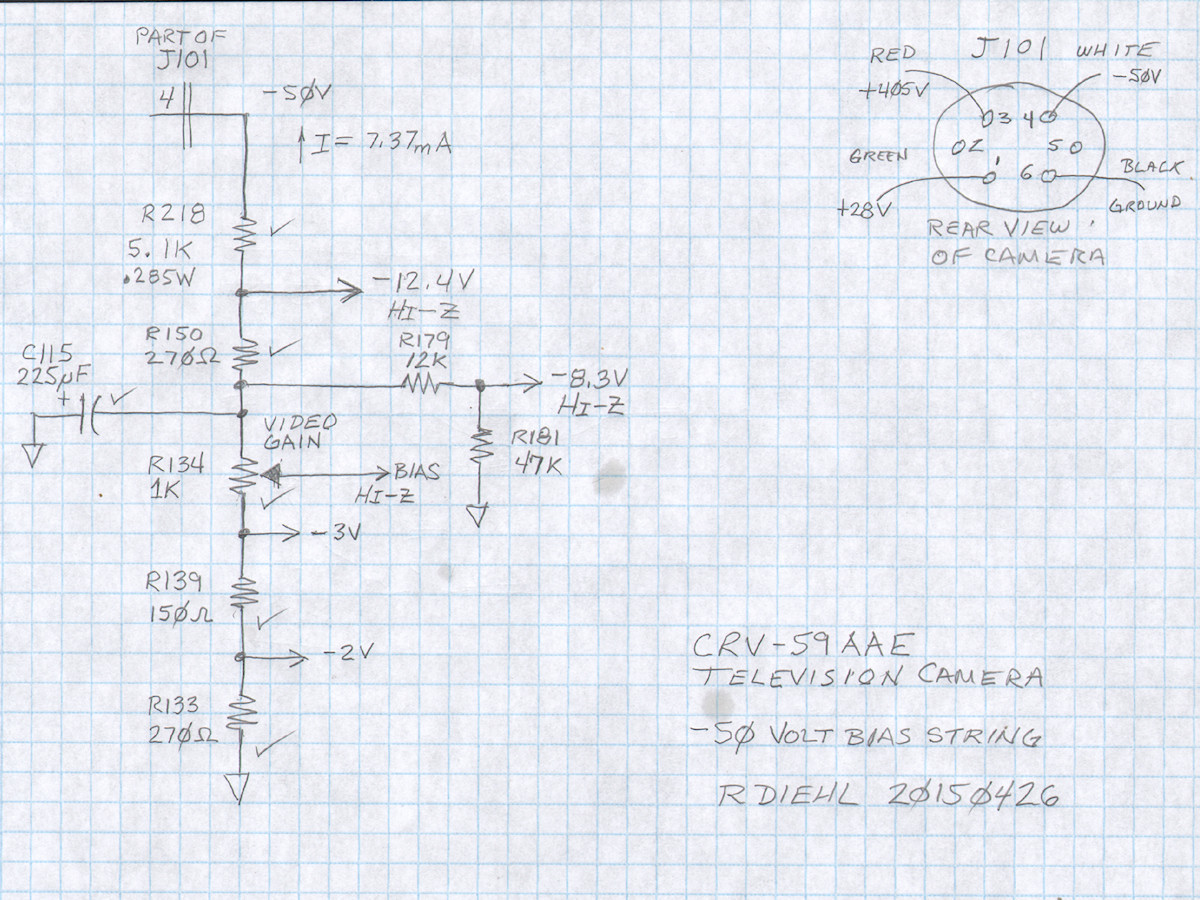 PART OF
J101
4
-5ØV
I = 7.37mA
R218
5.1K
.285W
-12.4V
HI-Z
R150
27ØΩ
R179
12K
C115
225µF
+
-8.3V
HI-Z
R181
47K
VIDEO
GAIN
R134
1K
BIAS
HI-Z
-3V
R139
15ØΩ
-2V
R133
27ØΩ
J101
RED
+4Ø5V
WHITE
-5ØV
3 4
2 5
1 6
GREEN
+28V
BLACK
GROUND
REAR VIEW
OF CAMERA
CRV-59AAE
TELEVISION CAMERA
-5Ø VOLT BIAS STRING
RDIEHL 2Ø15Ø426